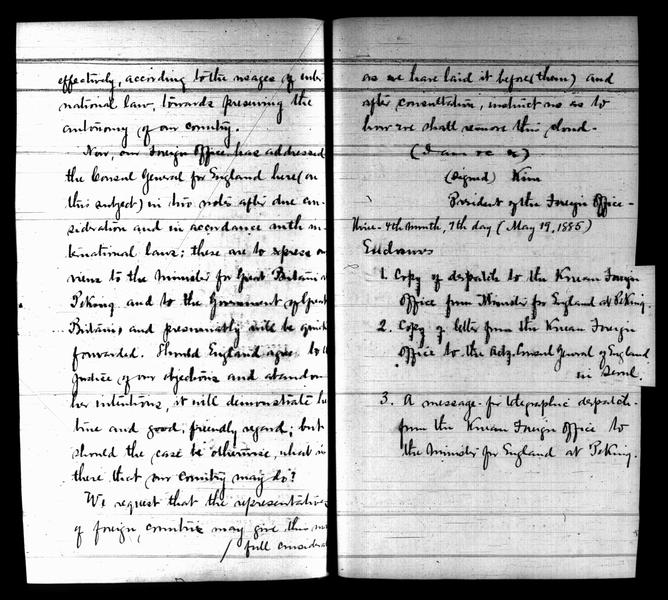 effectively, according to the usages of inter
national law, towards preserving the
autonomy of our country.
Now, our Foreign Office has addressed
the Consul General for England here (on
this subject) in two notes after due con-
sideration and in accordance with in-
ternational laws: these are to express our
views to the Minister for Great Britain at
Peking and to the Government of Great
Britain, and presumably will be quickly
forwarded. Should England agree to the
justice of our objections and abandon
her intentions, it will demonstrate
time and good, friendly regard; but
should the case be otherwise, what is
there that our Country may do?
We request that the representatives
of foreign countries may give this
full consideration
as we have laid it before (them) and
after consultation, instruct us as to
how we shall remove this cloud.
(I am &c &)
(signed) Kim
President of the Foreign Office -
4th month, 7th day (May 19, 1885)
Enclosures
1. Copy of despatch to the Korean Foreign
Office from Minister for England at Peking.
2. Copy of letter from the Korean Foreign
Office to the Actg. Consul General of England
in Seoul.
3. A message for telegraphic despatch -
from the Korean Foreign Office to
the Minister for England at Peking.